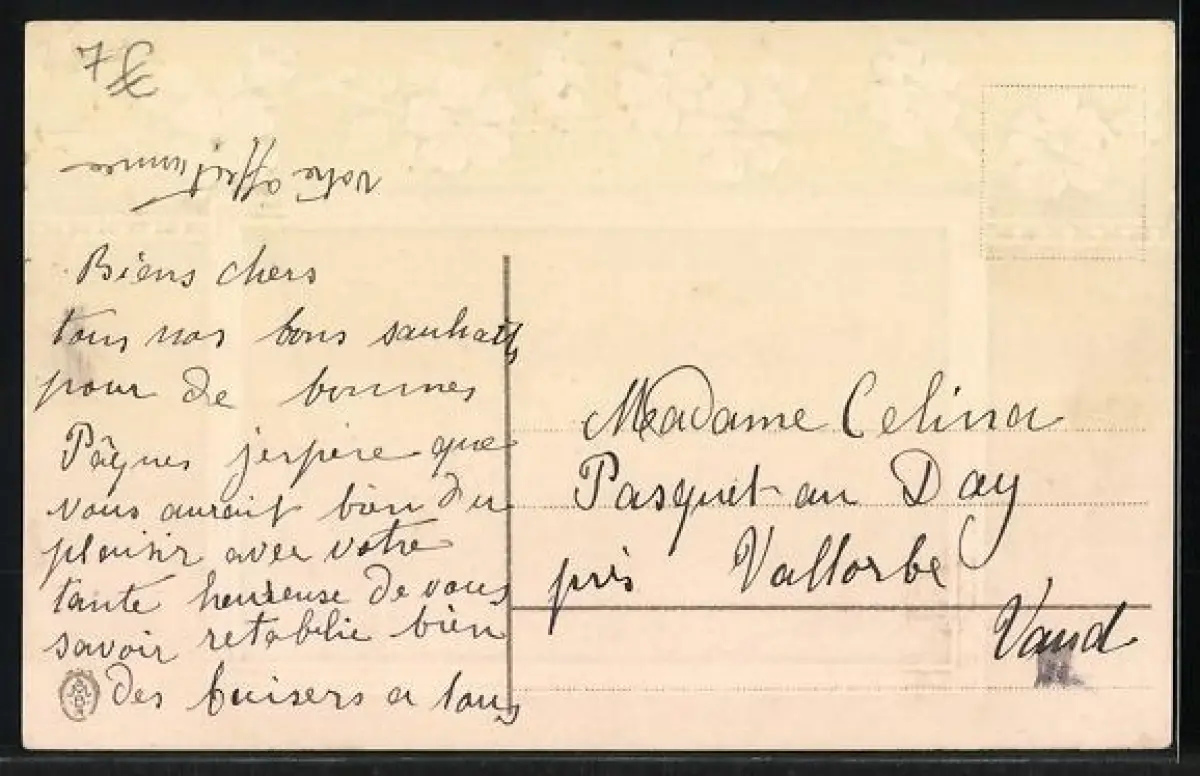 Biens chers
tous nos bons sauhaits
pour de bonnes
Pâques j'espère que
vous aurait bien du
plaisir avec votre
tante heureuse de vous
savoir retablie bien
des baisers a tous
votre
Madame Celina
Pasquet au Day
près Vallorbe
Vaud